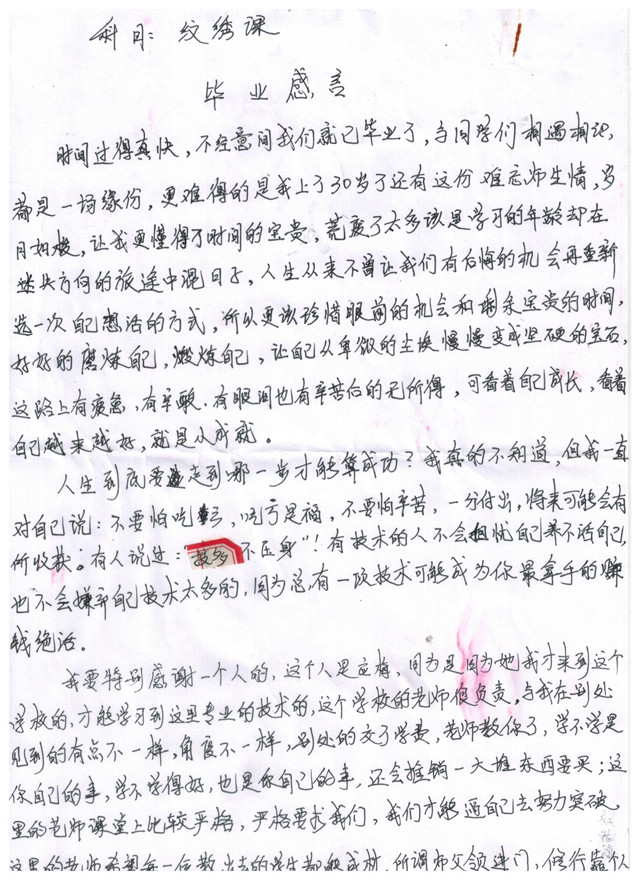 科目：纹绣课
毕业感言
时间过得真快，不经意间我们就已毕业了，与同学们相遇相识，
都是一场缘份，更难得的是我上了30岁了还有这份难忘师生情，岁
月如梭，让我更懂得了时间的宝贵，荒废了太多该是学习的年龄却在
迷失方向的旅途中混日子，人生从来不曾让我们有后悔的机会再重新
选一次自己想活的方式，所以更该珍惜眼前的机会和剩余宝贵的时间，
好好的磨炼自己，煅炼自己，让自己从卑微的尘埃慢慢变成坚硬的宝石，
这路上有疲惫，有辛酸．有眼泪也有辛苦后的无所得，可看着自己成长，看着
自己越来越好，就是从成就。
人生到底要走到哪一步才能算成功？我真的不知道，但我一直
对自己说：不要怕吃亏，吃亏是福，不要怕辛苦，一分付出，将来可能会有
所收获。有人说过："技多不压身"！有技术的人不会担忧自己养不活自己，
也不会嫌弃自己技术太多的，因为总有一段技术可能成为你最拿手的赚
钱绝活。
我要特别感谢一个人的，这个人是应梅，因为是因为她我才来到这个
学校的，才能学习到这里专业的技术的，这个学校的老师很负责，与我在别处
见到的有点不一样，角度不一样，别处的交了学费，老师教你了，学不学是
你自己的事，学不学得好，也是你自己的事，还会推销一大堆东西要买；这
里的老师课堂上比较严格，严格要求我们，我们才能通自己去努力突破，
这里的老师希望每一位教出去的学生都能成材，所谓师父领进门，修行靠个